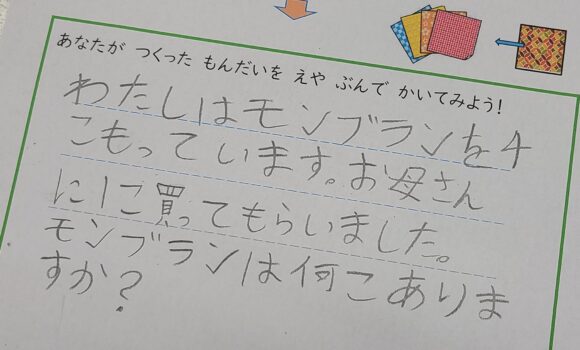 あなたが つくった もんだいを えや ぶんで かいてみよう!
わたしはモンブランを4
こもっています。お母さん
に1こ買ってもらいました。
モンブランは何こありま
すか?